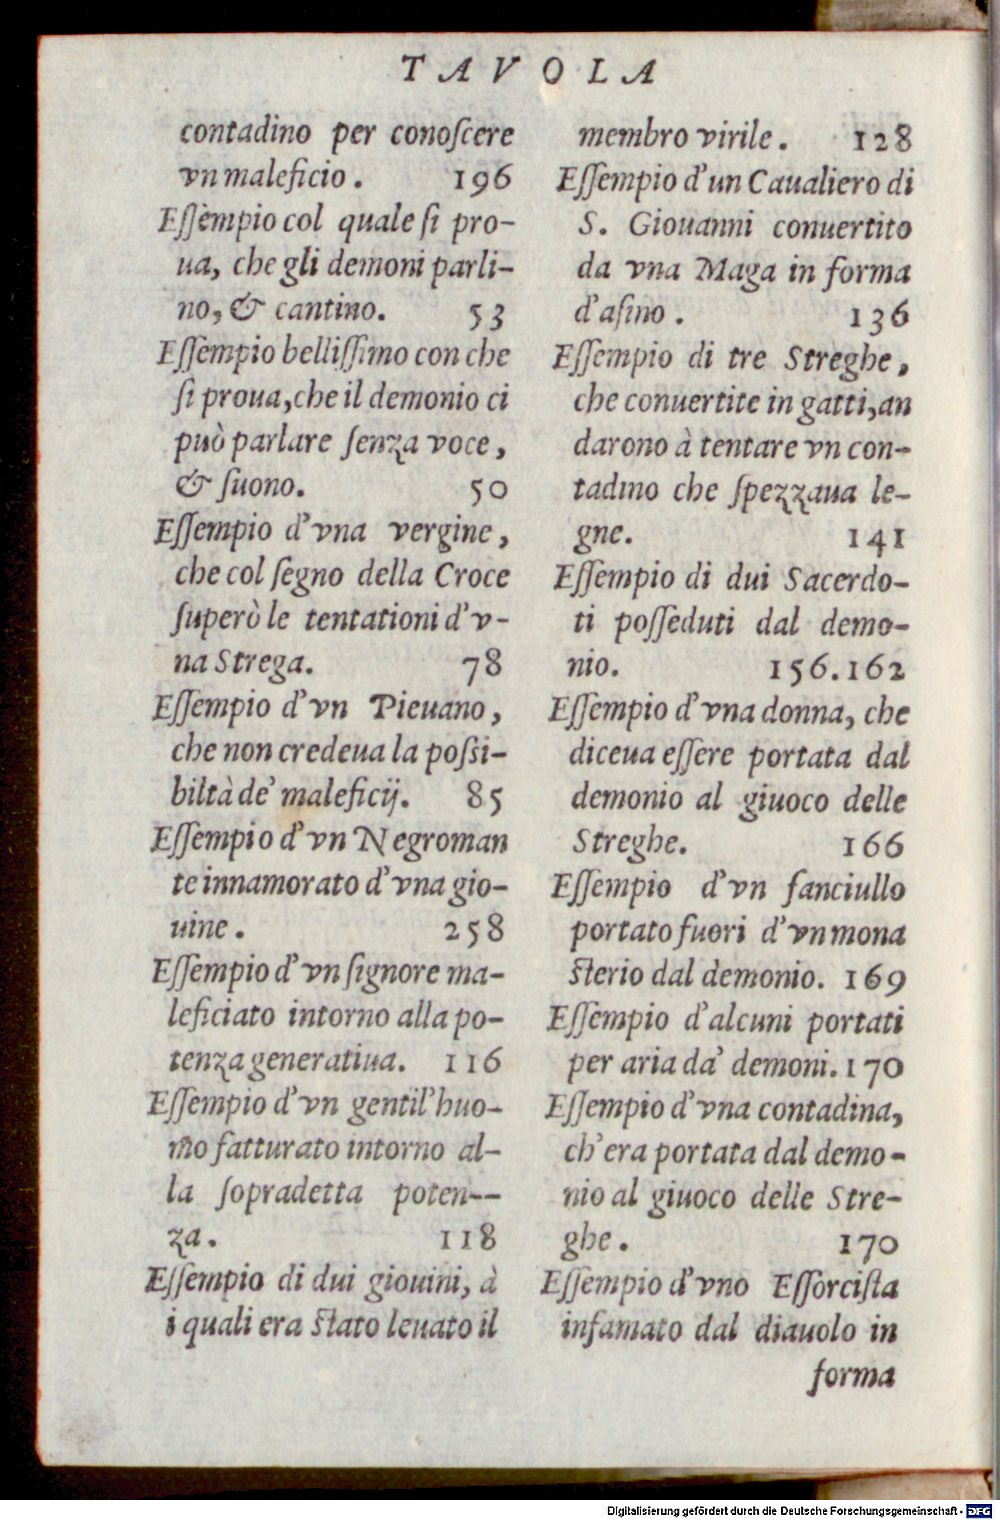 TAVOLA
contadino per conoſcere
vn maleficio. 196
Eſſempio col quale ſi pro-
ua, che gli demoni parli-
no, & cantino. 53
Eſſempio belliſſimo con che
ſi proua, che il demonio ci
può parlare ſenza voce,
& ſuono. 50
Eſſempio d'vna vergine,
che col ſegno della Croce
ſuperò le tentationi d'v-
na Strega. 78
Eſſempio d'vn Pieuano,
che non credeua la poſsi-
biltà de' maleficij. 85
Eſſempio d'vn Negroman
te innamorato d'vna gio-
uine. 258
Eſſempio d'vn ſignore ma-
leficiato intorno alla po-
tenza generatiua. 116
Eſſempio d'vn gentil'huo-
mo fatturato intorno al-
la ſopradetta poten--
za. 118
Eſſempio di dui giouini, à
i quali era ſtato leuato il
membro virile. 128
Eſſempio d'un Caualiero di
S. Giouanni conuertito
da vna Maga in forma
d'aſino. 136
Eſſempio di tre Streghe,
che conuertite in gatti, an
darono à tentare vn con-
tadino che ſpezzaua le-
gne. 141
Eſſempio di dui Sacerdo-
ti poſſeduti dal demo-
nio. 156.162
Eſſempio d'vna donna, che
diceua eſſere portata dal
demonio al giuoco delle
Streghe. 166
Eſſempio d'vn fanciullo
portato fuori d'vn mona
ſterio dal demonio. 169
Eſſempio d'alcuni portati
per aria da' demoni. 170
Eſſempio d'vna contadina,
ch'era portata dal demo-
nio al giuoco delle Stre-
ghe. 170
Eſſempio d'vno Eſſorciſta
infamato dal diauolo in
forma
Digitalisierung gefördert durch die Deutsche Forschungsgemeinschaft - DFG